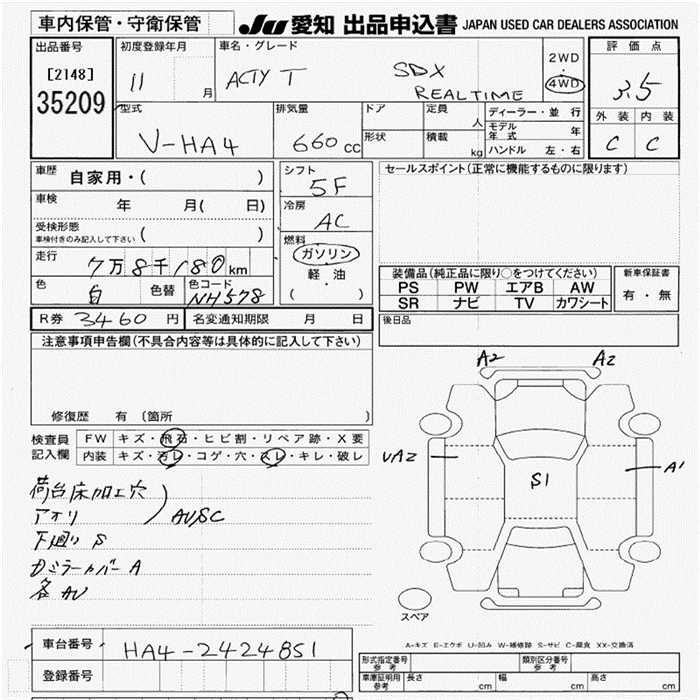 車内保管・守衛保管
JU 愛知 出品申込書 JAPAN USED CAR DEALERS ASSOCIATION
出品番号
[2148]
35209
初度登録年月
11 月
車名・グレード
ACTY T SDX
REALTIME
2WD
4WD
評価点
3.5
外装 内装
C C
型式
V-HA4
排気量
660 cc
ドア
形状
定員
人
積載
kg
ディーラー・並行
モデル年式 年
ハンドル 左・右
車歴
自家用・( )
車検
年 月( 日)
受検形態
車検付きのみ記入して下さい ( )
走行
7万8千180km
色
白
色替
色コード
NH578
シフト
5F
冷房
AC
燃料
ガソリン
軽油
( ・ )
セールスポイント(正常に機能するものに限ります)
装備品(純正品に限り○をつけてください)
PS PW エアB AW
SR ナビ TV カワシート
新車保証書
有・無
R券 3460 円
名変通知期限 月 日
後日品
注意事項申告欄(不具合内容等は具体的に記入して下さい)
修復歴 有 〔箇所 〕
検査員
記入欄
FW キズ・飛石・ヒビ割・リペア跡・X要
内装 キズ・汚レ・コゲ・穴・スレ・キレ・破レ
荷台床加工穴
アオリ
AU/SC
下廻り S
ミラーカバー A
各AU
A2 A2
UA2
S1
A1
スペア
A-キズ E-エクボ U-凹み W-補修跡 S-サビ C-腐食 XX-交換済
車台番号
HA4-2424851
登録番号
形式指定番号
参考
類別区分番号
参考
車庫証明用
参考
長さ cm
幅 cm
高さ cm